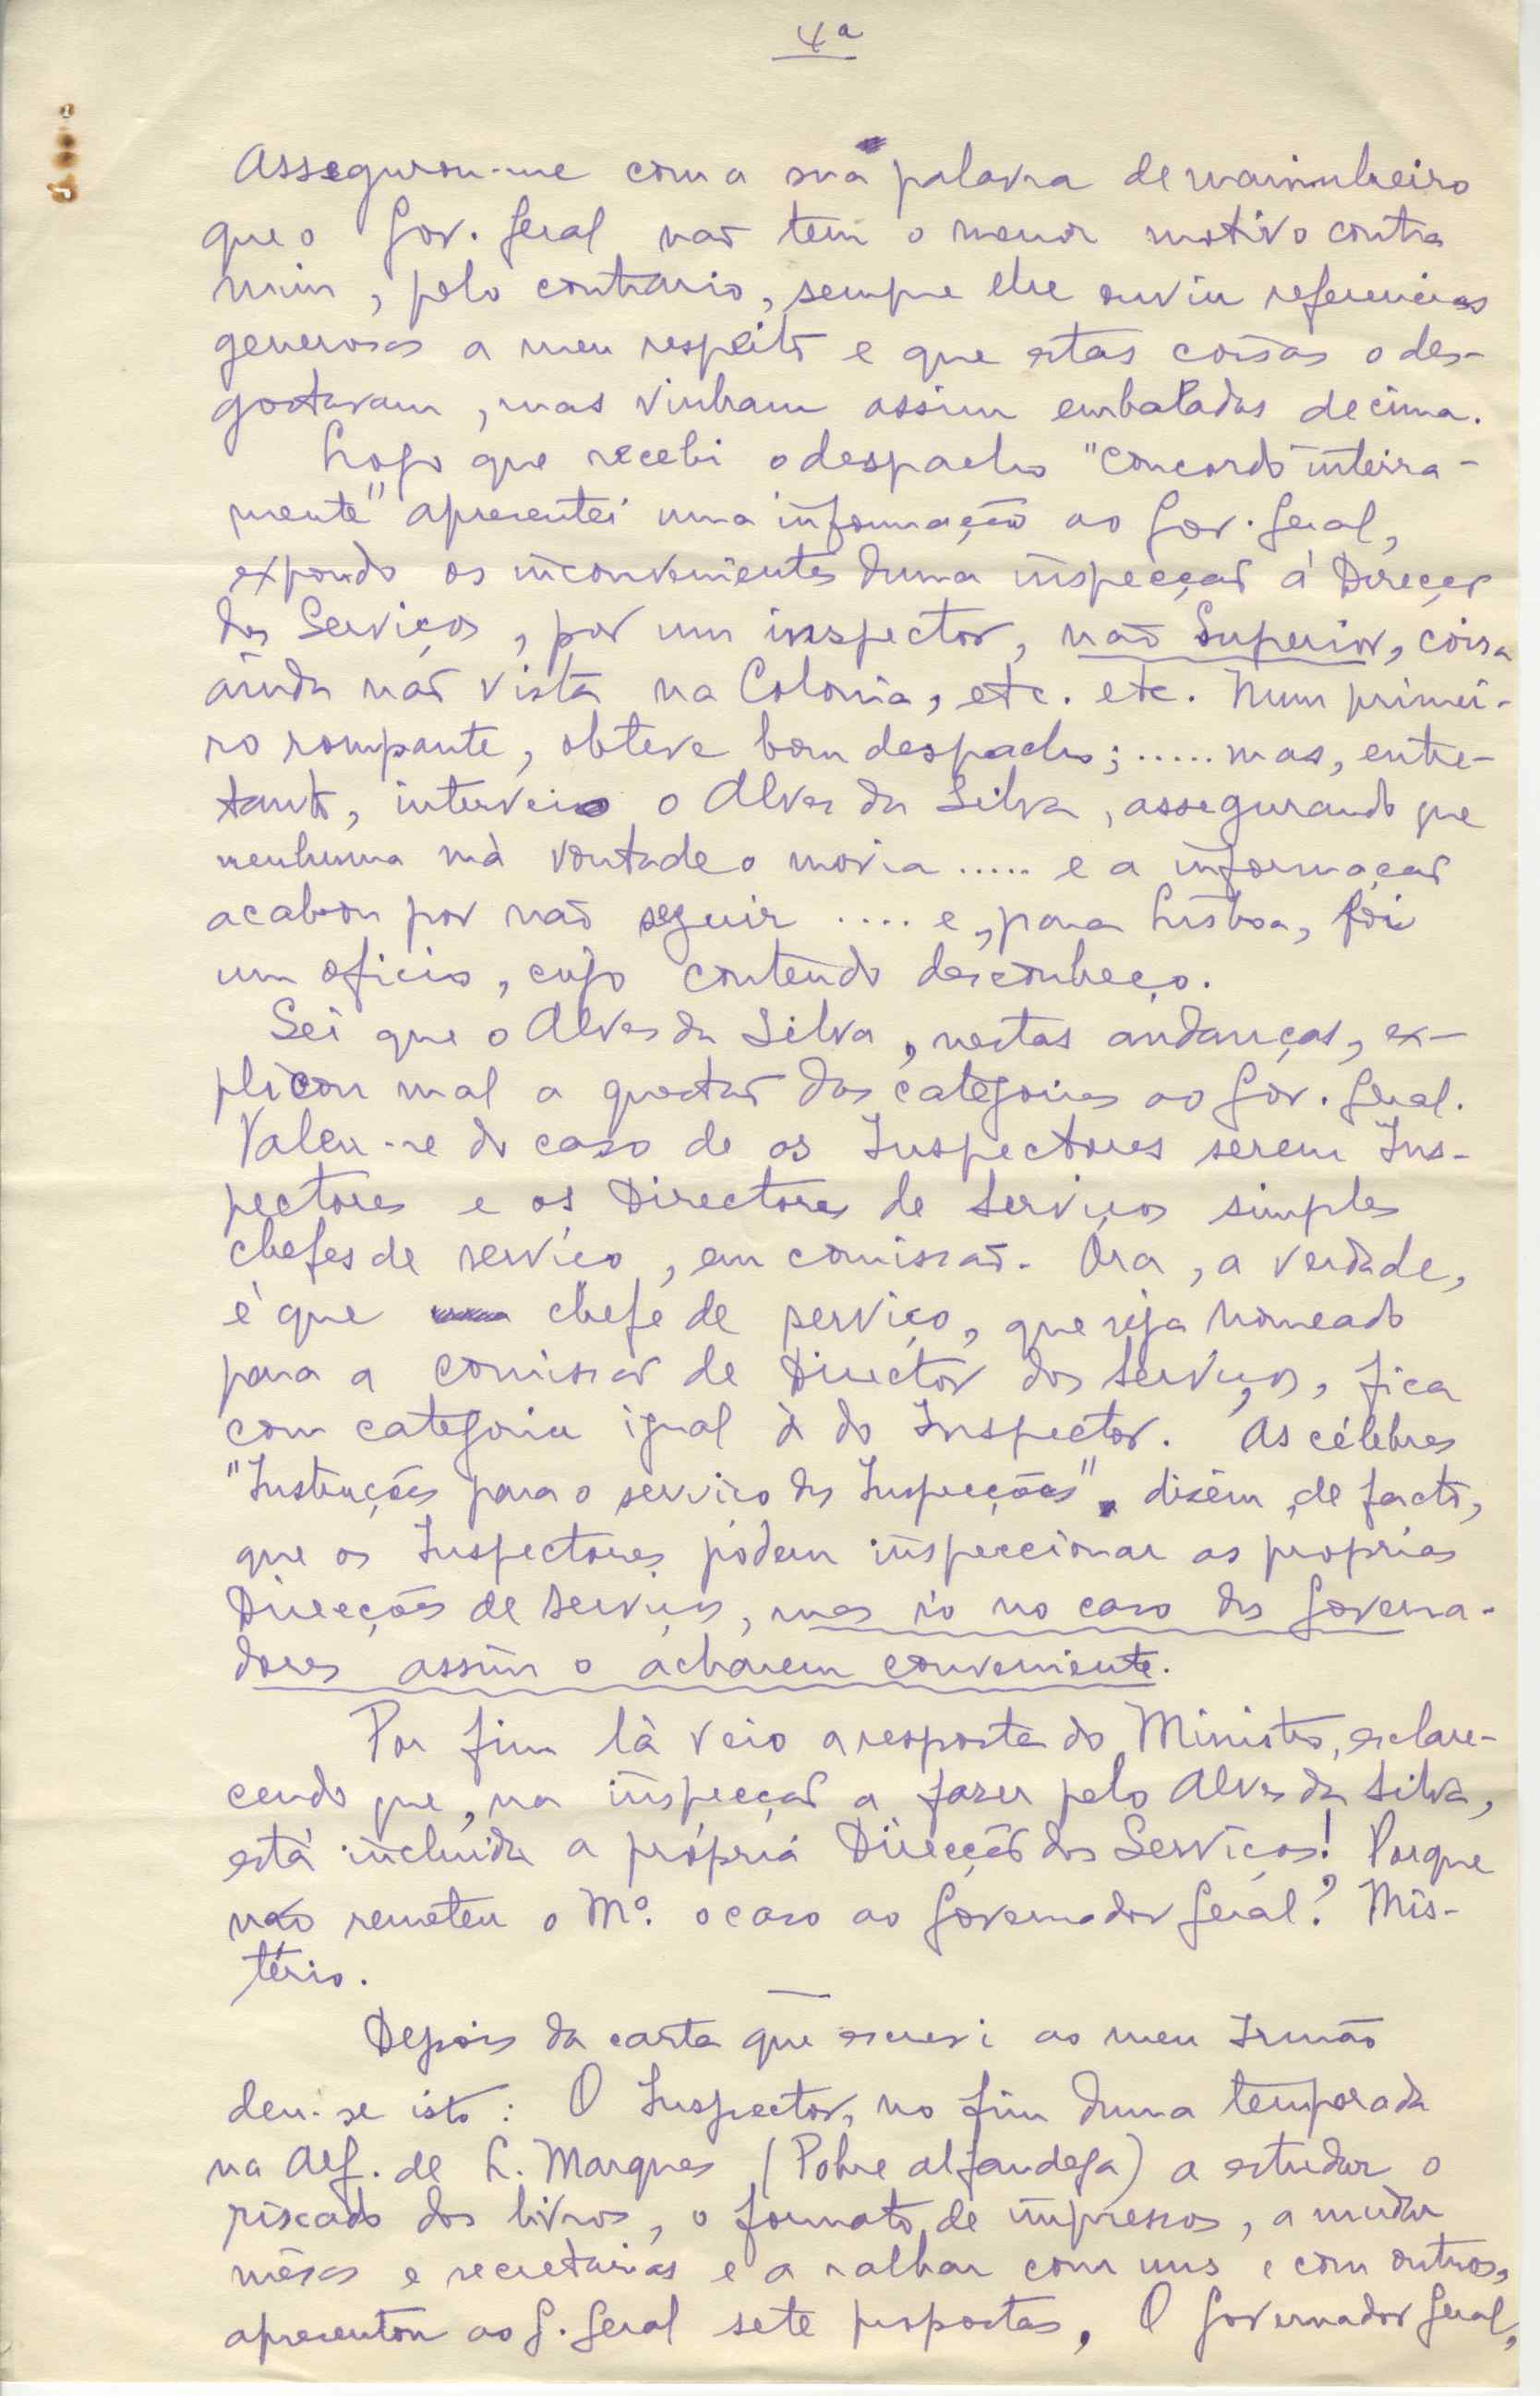 4ª
Assegurou-me com a sua palavra de marinheiro
que o Gov. Geral não tem o menor motivo contra
mim, pelo contrario, sempre lhe ouviu referencias
generosas a meu respeito e que estas coisas o des-
gostavam, mas vinham assim embaladas de cima.
Logo que recebi o despacho "concordo inteira-
mente" apresentei uma informação ao Gov. Geral,
expondo os inconvenientes duma inspecção á Direcção
dos Serviços, por um inspector, não Superior, coisa
ainda não vista na Colonia, etc. etc. Num primei-
ro rompante, obteve bom despacho; ..... mas, entre-
tanto, interveio o Alves da Silva, assegurando que
nenhuma má vontade o movia ..... e a informação
acabou por não seguir .... e, para Lisboa, foi
um oficio, cujo conteúdo desconheço.
Sei que o Alves da Silva, nestas andanças, ex-
plicou mal a questão das categorias ao Gov. Geral.
Valeu-se do caso de os Inspectores serem Ins-
pectores e os Directores de Serviços simples
chefes de serviço, em comissão. Ora, a verdade,
é que chefe de serviço, que seja nomeado
para a comissão de Director dos Serviços, fica
com categoria igual à do Inspector. As célebres
"Instruções para o serviço das Inspecções", dizem, de facto,
que os Inspectores pódem inspeccionar as proprias
Direcções de Serviços, mas só no caso dos Governa-
dores assim o acharem conveniente.
Por fim lá veio a resposta do Ministro, esclare-
cendo que, na inspecção a fazer pelo Alves da Silva,
está incluida a própria Direcção dos Serviços! Porque
não remeteu o Mº. o caso ao Governador Geral? Mis-
tério.
Depois da carta que escrevi ao meu Irmão
deu-se isto: O Inspector, no fim duma temporada
na Alf. de L. Marques (Pobre alfandega) a estudar o
riscado dos livros, o formato de impressos, a mudar
mêsas e secretarias e a ralhar com uns e com outros,
apresentou ao G. Geral sete propostas. O Governador Geral,